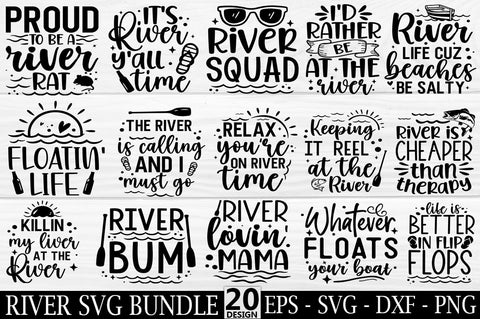 PROUD
TO BE A
river
RAT
IT'S
River
y'all
time
River
SQUAD
I'D
RATHER
BE
AT THE
river
River
LIFE CUZ
beaches
BE SALTY
FLOATIN'
LIFE
THE RIVER
is calling
AND I
must go
RELAX
you're
ON RIVER
time
Keeping
IT REEL
at the
River
River IS
CHEAPER
than
THERAPY
KILLIN
my liver
AT THE
River
RIVER
BUM
RIVER
lovin'
MAMA
Whatever
FLOATS
your boat
life is
BETTER
IN FLIP
FLOPS
RIVER SVG BUNDLE 20 DESIGN EPS - SVG - DXF - PNG